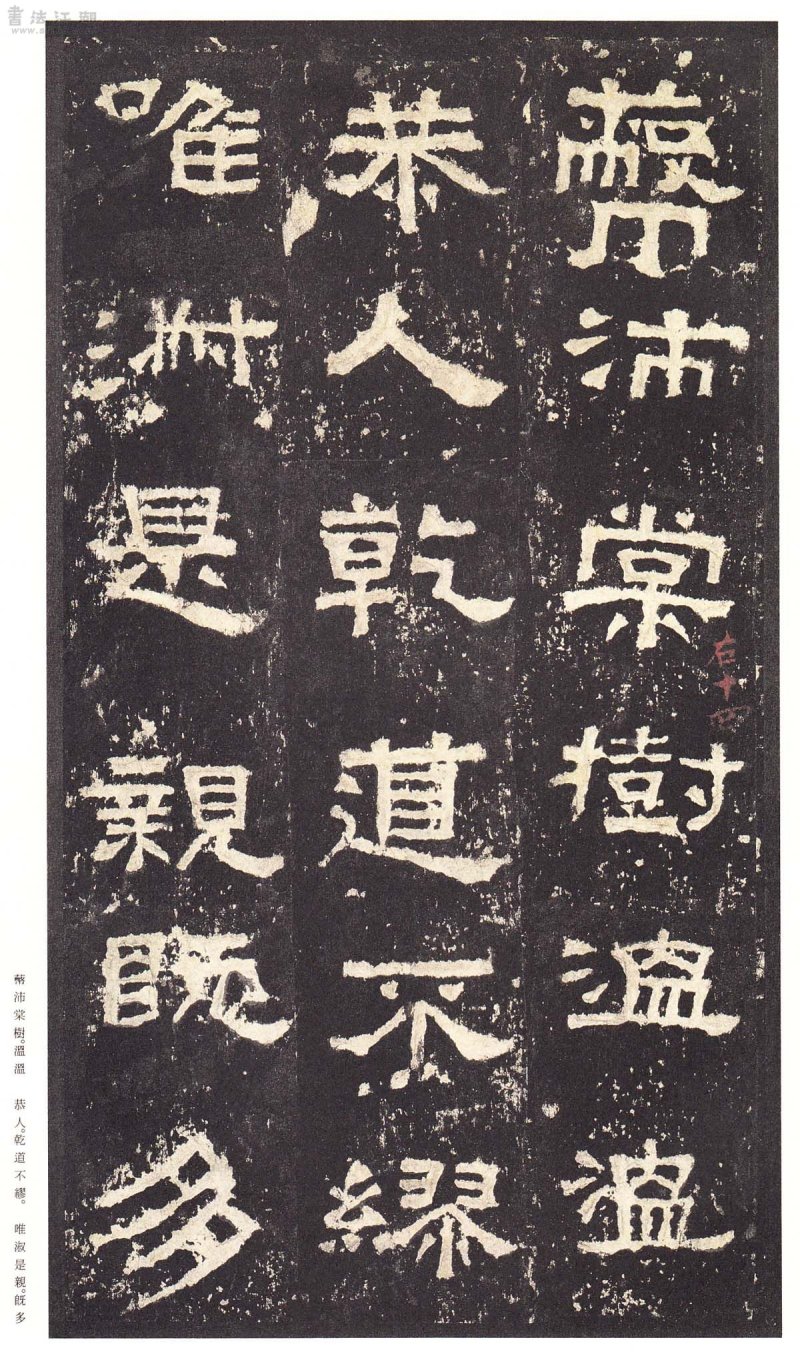 蔽沛棠樹溫溫
恭人乾道不繆
唯淑是親既多
右十四
蔽沛棠樹。溫溫　恭人。乾道不繆。　唯淑是親。既多
書法江湖